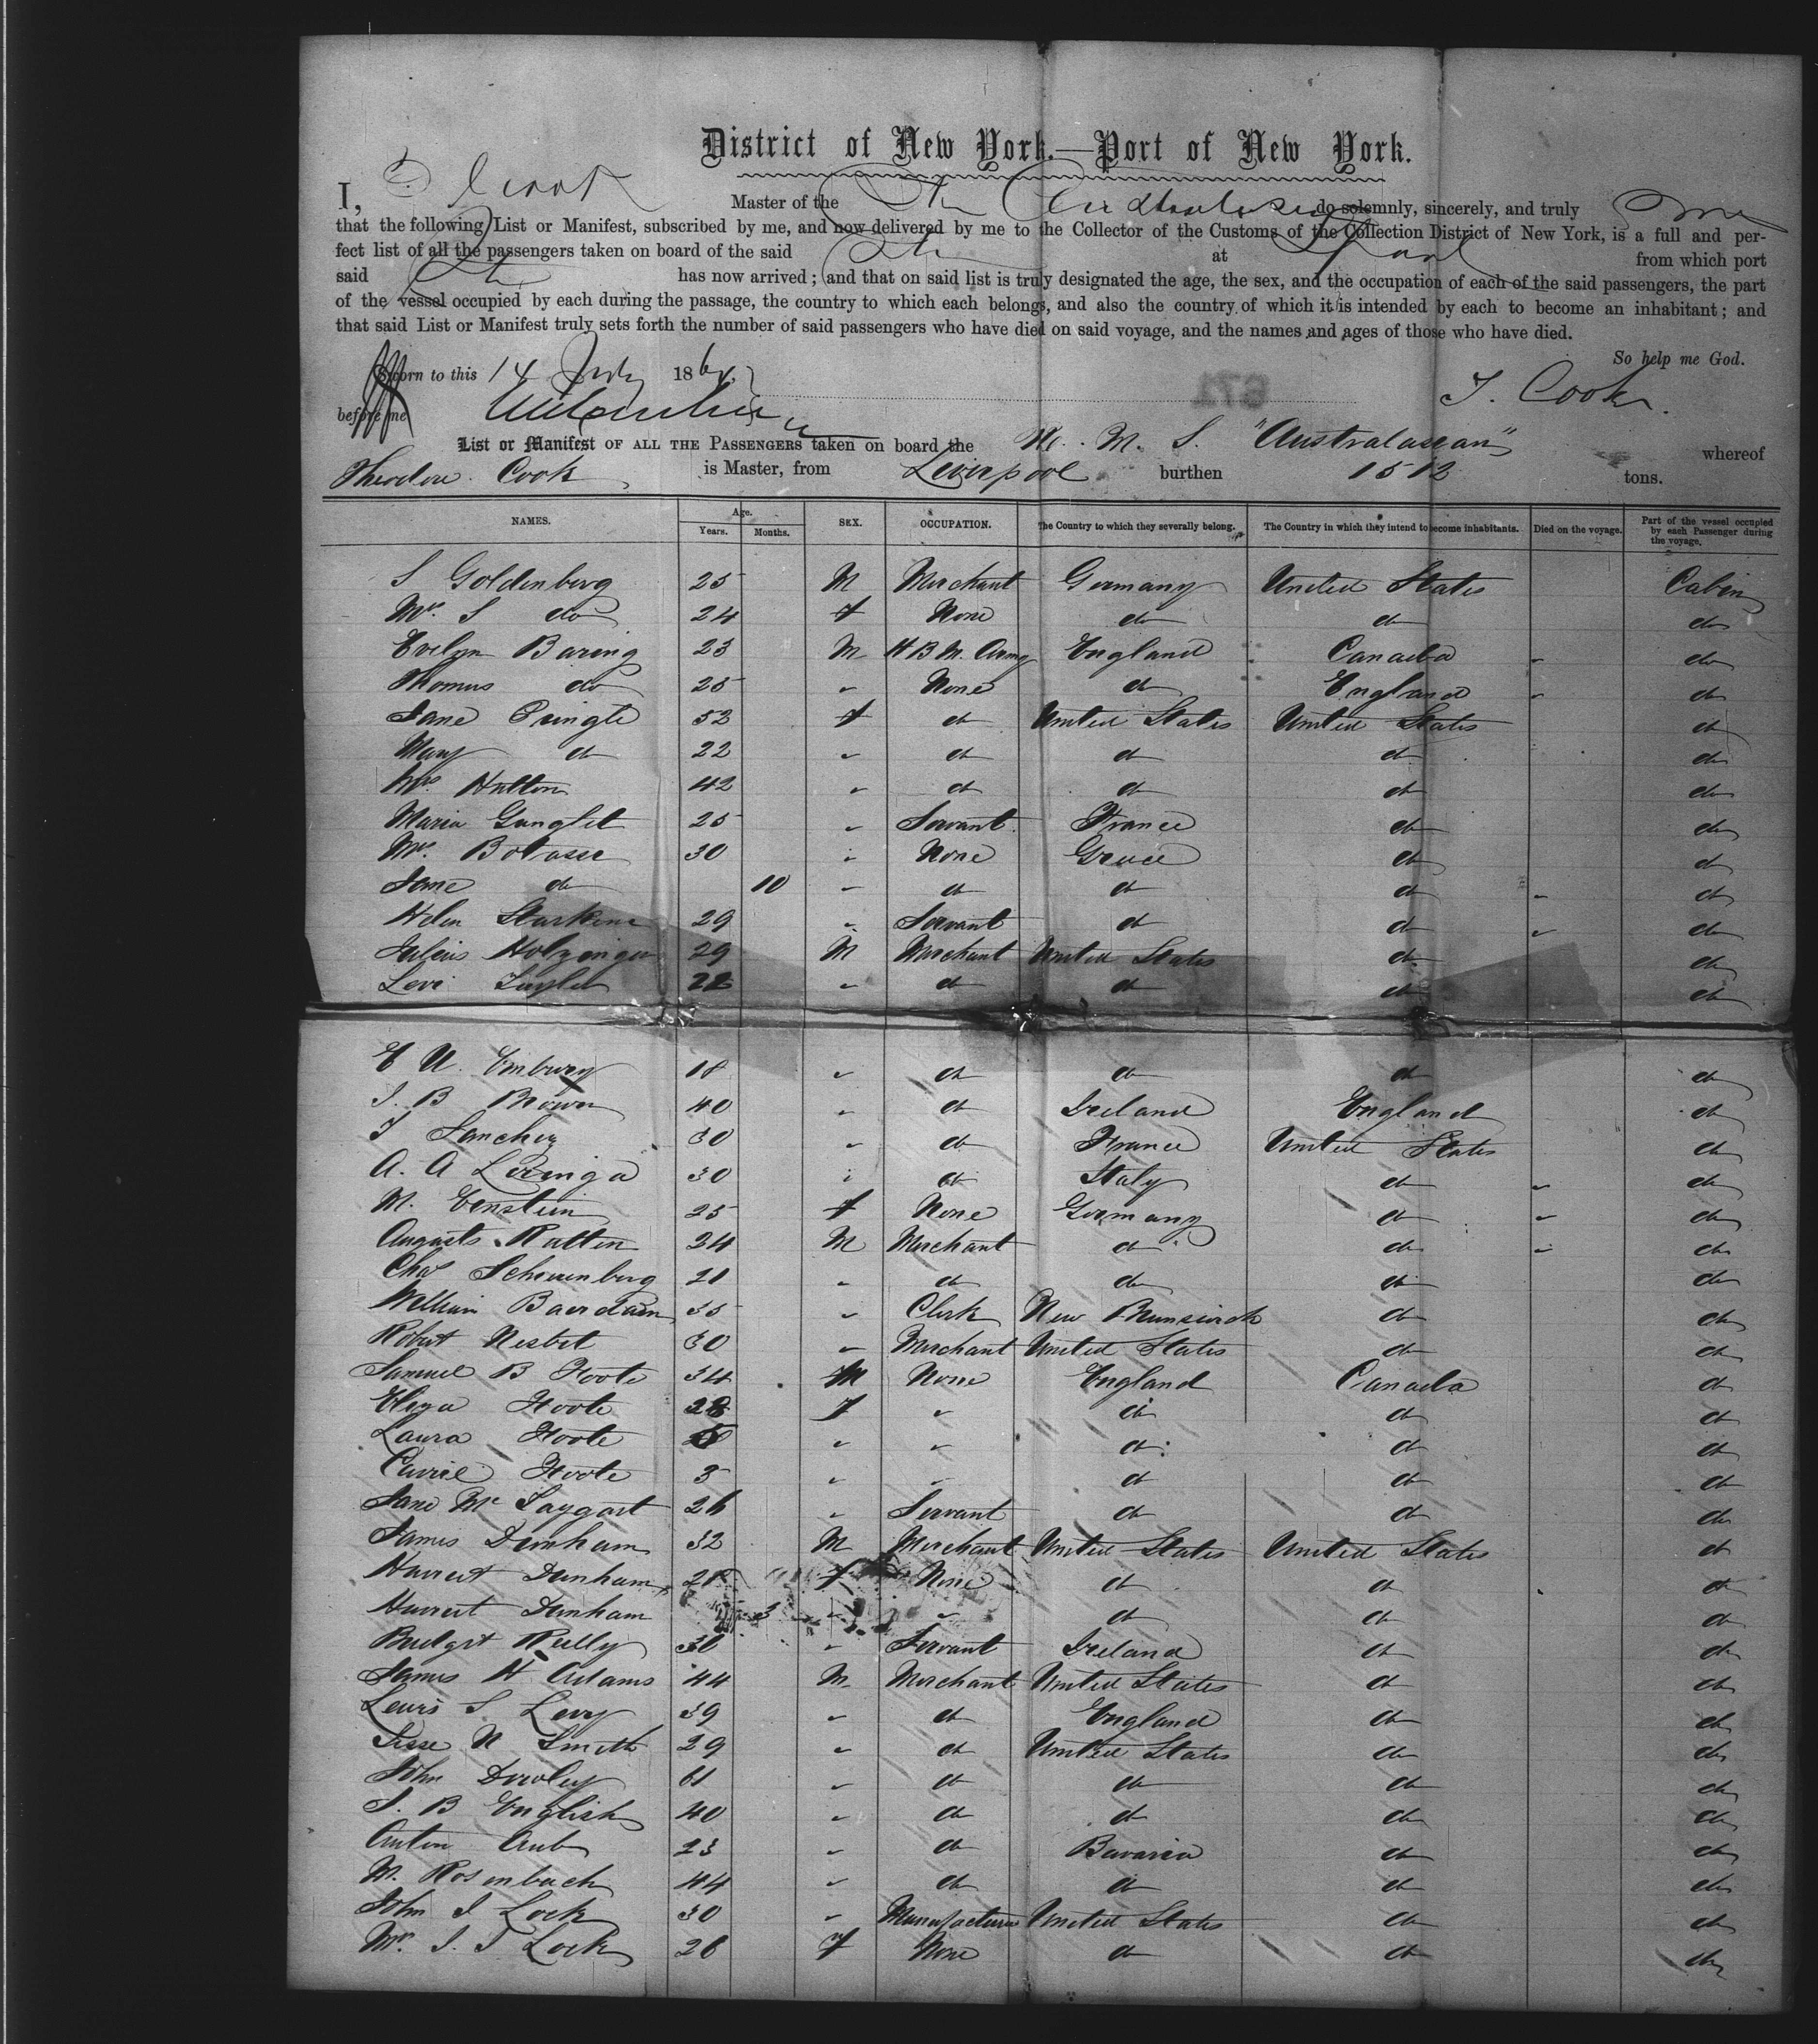 District of New York.—Port of New York.
I, T. Cook Master of the Str Australasian do solemnly, sincerely, and truly
that the following List or Manifest, subscribed by me, and now delivered by me to the Collector of the Customs of the Collection District of New York, is a full and per-
fect list of all the passengers taken on board of the said Str at Lpool from which port
said Str has now arrived; and that on said list is truly designated the age, the sex, and the occupation of each of the said passengers, the part
of the vessel occupied by each during the passage, the country to which each belongs, and also the country of which it is intended by each to become an inhabitant; and
that said List or Manifest truly sets forth the number of said passengers who have died on said voyage, and the names and ages of those who have died.
So help me God.
Sworn to this 14 July 1864
671
T. Cook.
before me
List or Manifest OF ALL THE PASSENGERS taken on board the R. M. S. "Australasian" whereof
Theodore Cook is Master, from Liverpool burthen 1512 tons.
NAMES. Age. Years. Months. SEX. OCCUPATION. The Country to which they severally belong. The Country in which they intend to become inhabitants. Died on the voyage. Part of the vessel occupied by each Passenger during the voyage.
S Goldenberg 25 M Merchant Germany United States Cabin
Mrs. S do 24 f None do do do
Evelyn Baring 23 M H B M. Army England Canada do
Thomas do 25 " None do England do
Jane Pringle 52 f do United States United States do
Mary do 22 " do do do do
Mrs. Hutton 42 " do do do do
Maria Gunglet 25 " Servant France do do
Mrs. Botasse 30 " None Greece do do
Jane do 10 " do do do do
Helen 29 " Servant do do do
Julius Holzinger 29 M Merchant United States do do
Levi " do do do do
E U. Embury 18 " do do do do
J. B Brown 40 " do Ireland England do
J Sanchez 30 " do France United States do
A. A 30 " do Italy do do
M. Ernstein 25 f None Germany do do
Augusts Rutten 24 M Merchant do do do
Chas Schonenberg 21 " do do do do
William Baerdain 35 " Clerk New Brunswick do do
Robert Nesbet 30 " Merchant United States do do
Samuel B Foote 34 M None England Canada do
Eliza Foote 28 f " do do do
Laura Foote " " do do do
Carrie Foote 3 " " do do do
Jane McTaggart 26 " Servant do do do
James Dunham 32 M Merchant United States United States do
Harriet Dunham f None do do do
Harriet Dunham 3 " " do do do
Bridget Reilly 30 " Servant Ireland do do
James H Adams 44 M Merchant United States do do
Lewis S Levy 39 " do England do do
Jesse N Smith 29 " do United States do do
John Dowley 61 " do do do do
J. B English 40 " do do do do
Anton Aub 23 " do Bavaria do do
M. Rosenbach 44 " do do do do
John J Lock 30 " Manufacturer United States do do
Mrs. J. J Lock 26 f None do do do